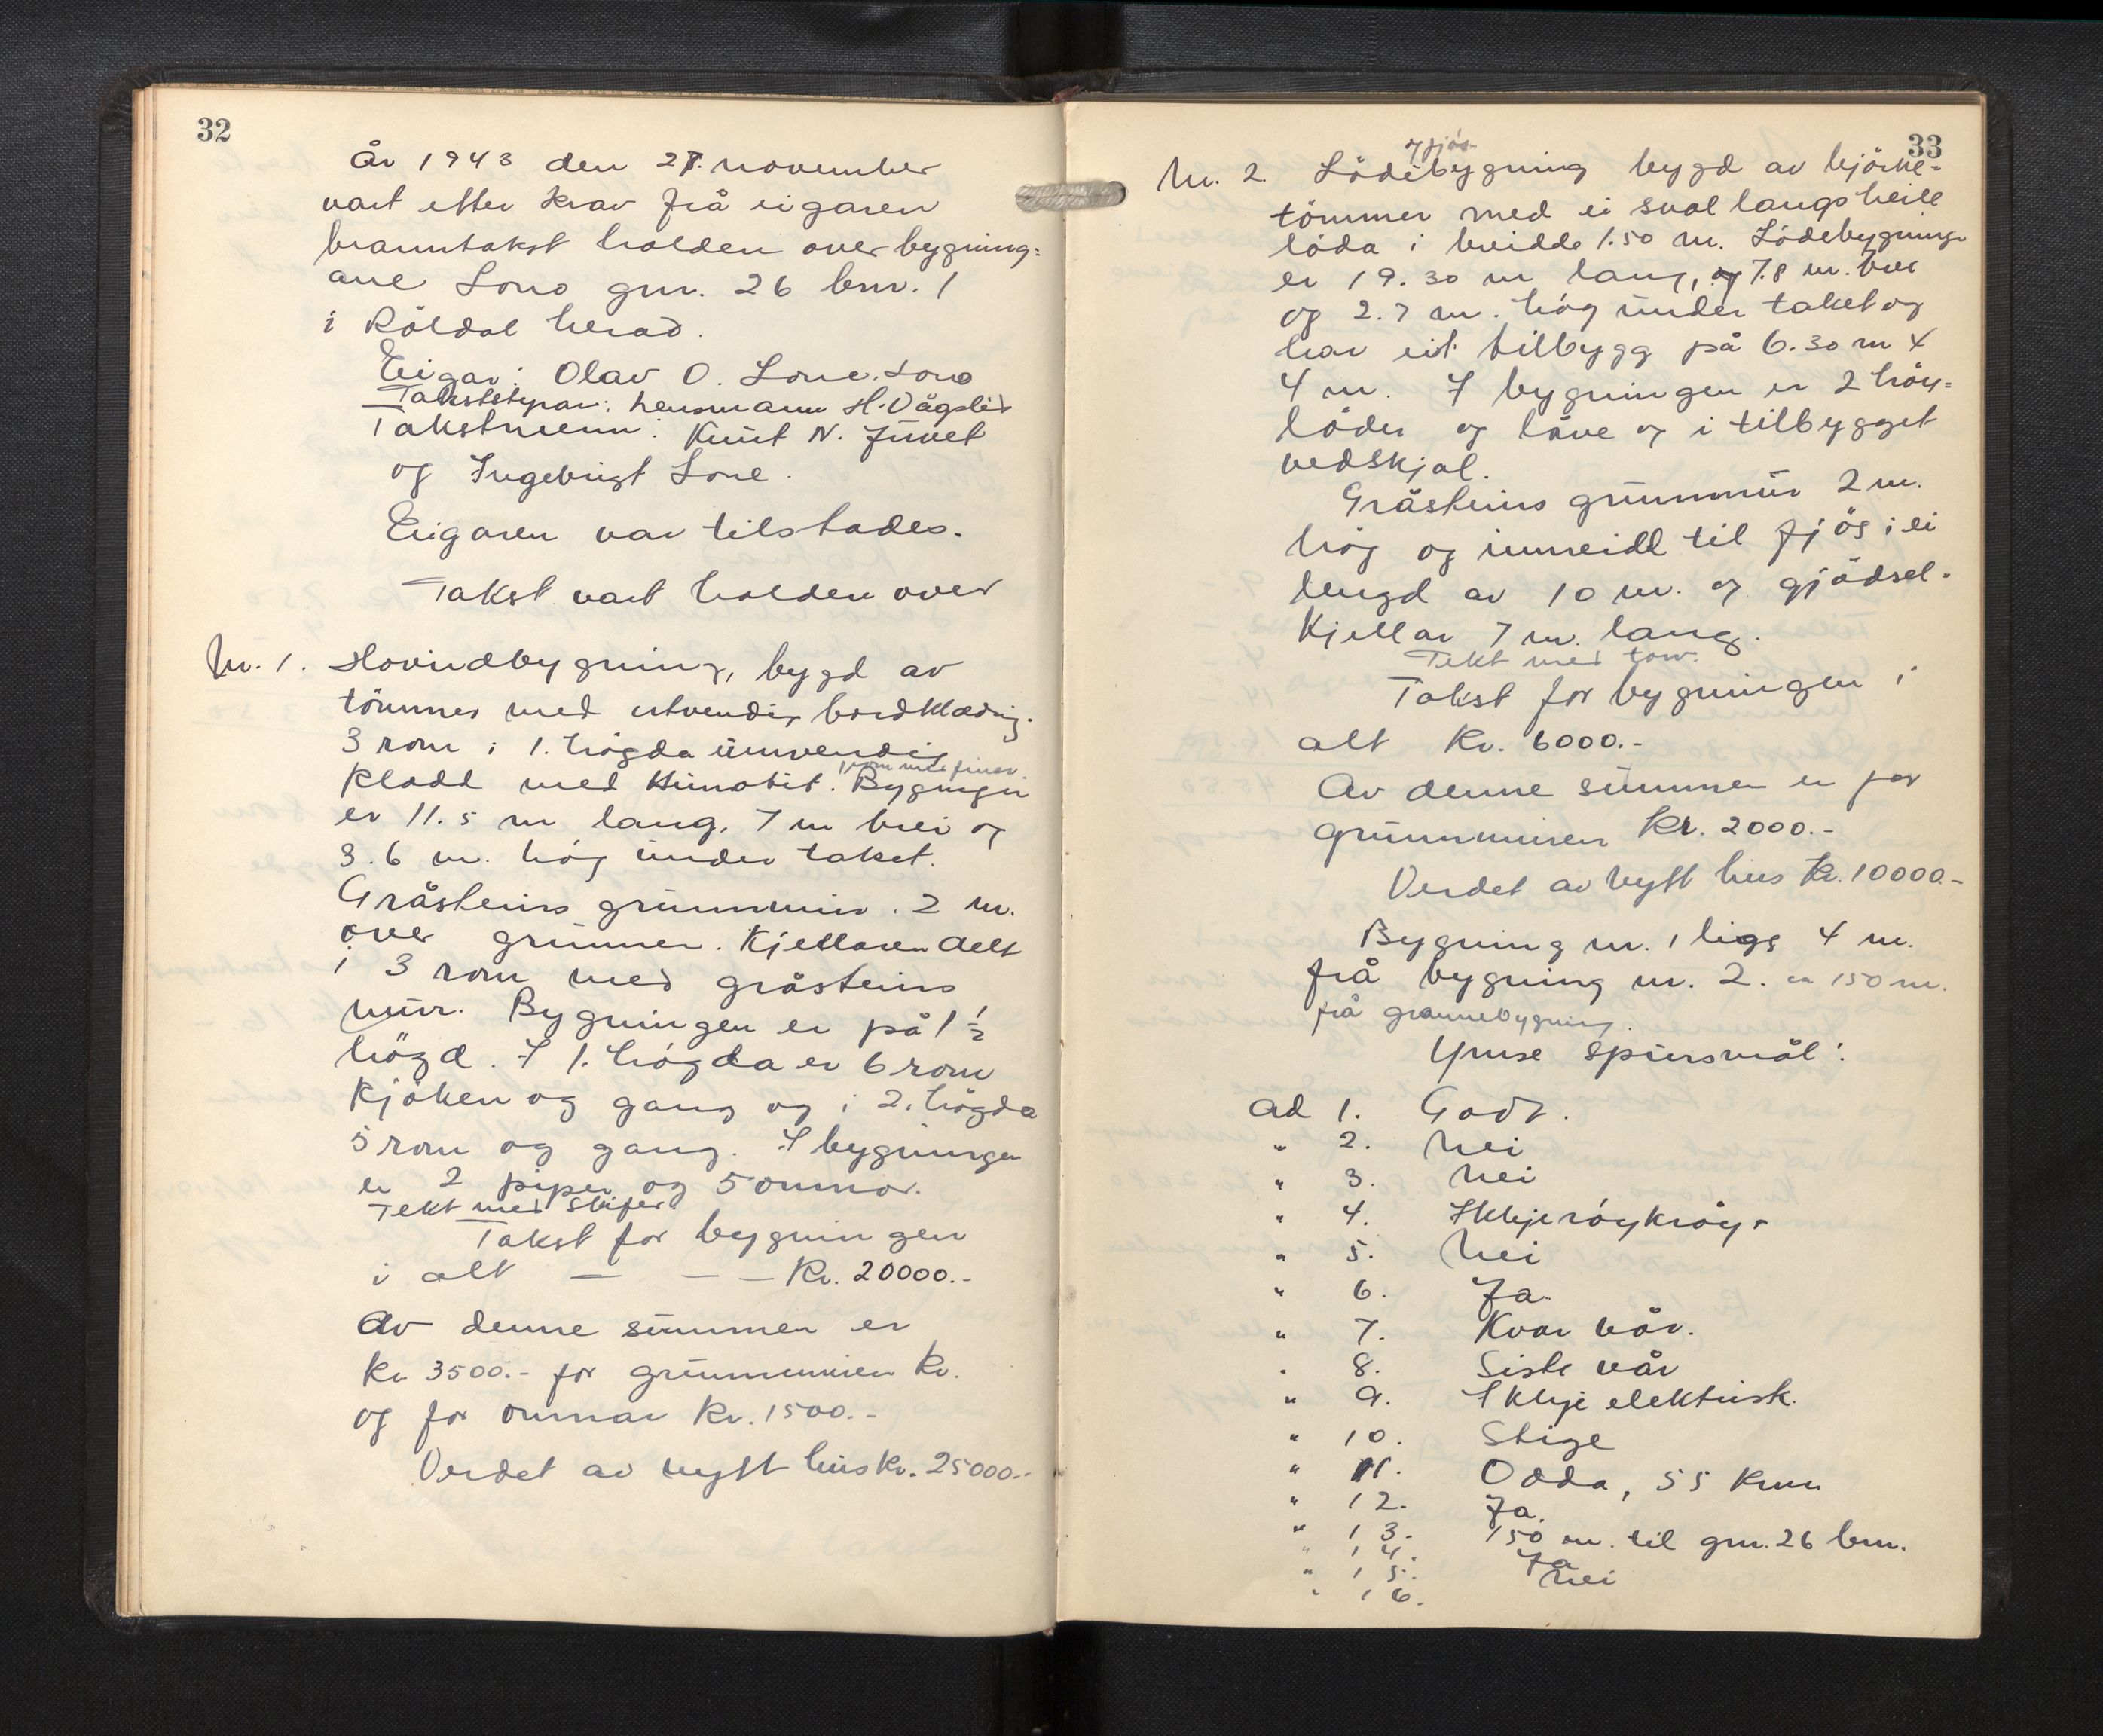 32
År 1943 den 27. november
vart etter krav frå eigaren
branntakst halden over bygning=
ane Lono gnr. 26 bnr. 1
i Röldal herad.
Eigar: Olav O. Lone. Lono
Takststyrar: lensmann H. Vågslid
Takstmenn: Knut N. Juvet
og Ingebrigt Lone.
Eigaren var tilstades.
Takst vart halden over
Nr. 1. Hovudbygning, bygd av
tömmer med utvendig bordklædnig.
3 rom i 1. högda innvendig
1 rom med finer.
kladd med Hunotit. Bygningen
er 11.5 m lang, 7 m brei og
3.6 m. hög under taket.
Gråsteins grunnmur. 2 m.
over grunnen. Kjellaren delt
i 3 rom med gråsteins
mur. Bygningen er på 1 ½
högd. I 1. högda er 6 rom
kjöken og gang og i 2. högda
5 rom og gang. I bygningen
er 2 piper og 5 omnar.
Tekt med skifer
Takst for bygningen
i alt — — — Kr. 20000.-
Av denne summen er
kr 3500.- for grunnmuren kr.
og for omnar kr. 1500.-
Verdet av nytt hus kr. 25000.-
33
og fjös
Nr. 2. Lödebygning bygd av björke-
tömmer med ei sval langs heile
löda i breidde 1.50 m. Lödebygninge
er 19.30 m lang, og 7.8 m. brei
og 2.7 m. hög under taket og
har eit tilbygg på 6.30 m x
4 m. I bygningen er 2 höy=
löder og låve og i tilbygget
vedskjal.
Gråsteins grunnmur 2 m.
hög og innreidd til fjös i ei
lengd av 10 m. og gjödsel-
kjellar 7 m. lang.
Tekt med torv.
Takst for bygningen i
alt kr. 6000.-
Av denne summen er for
grunnmuren kr. 2000.-
Verdet av nytt hus kr. 10000.-
Bygning nr. 1 ligg 4 m.
frå bygning nr. 2. ca 150 m.
frå grannebygning.
Ymse spursmål:
ad 1. Godt.
" 2. Nei
" 3. Nei
" 4. Ikkje röykröyr
" 5. Nei
" 6. Ja.
" 7. Kvar vår.
" 8. Siste vår
" 9. Ikkje elektrisk.
" 10. Stige
" 11. Odda, 55 km
" 12. Ja.
" 13. 150 m. til gnr. 26 bnr.
" 14. Ja
" 15. Nei
" 16.